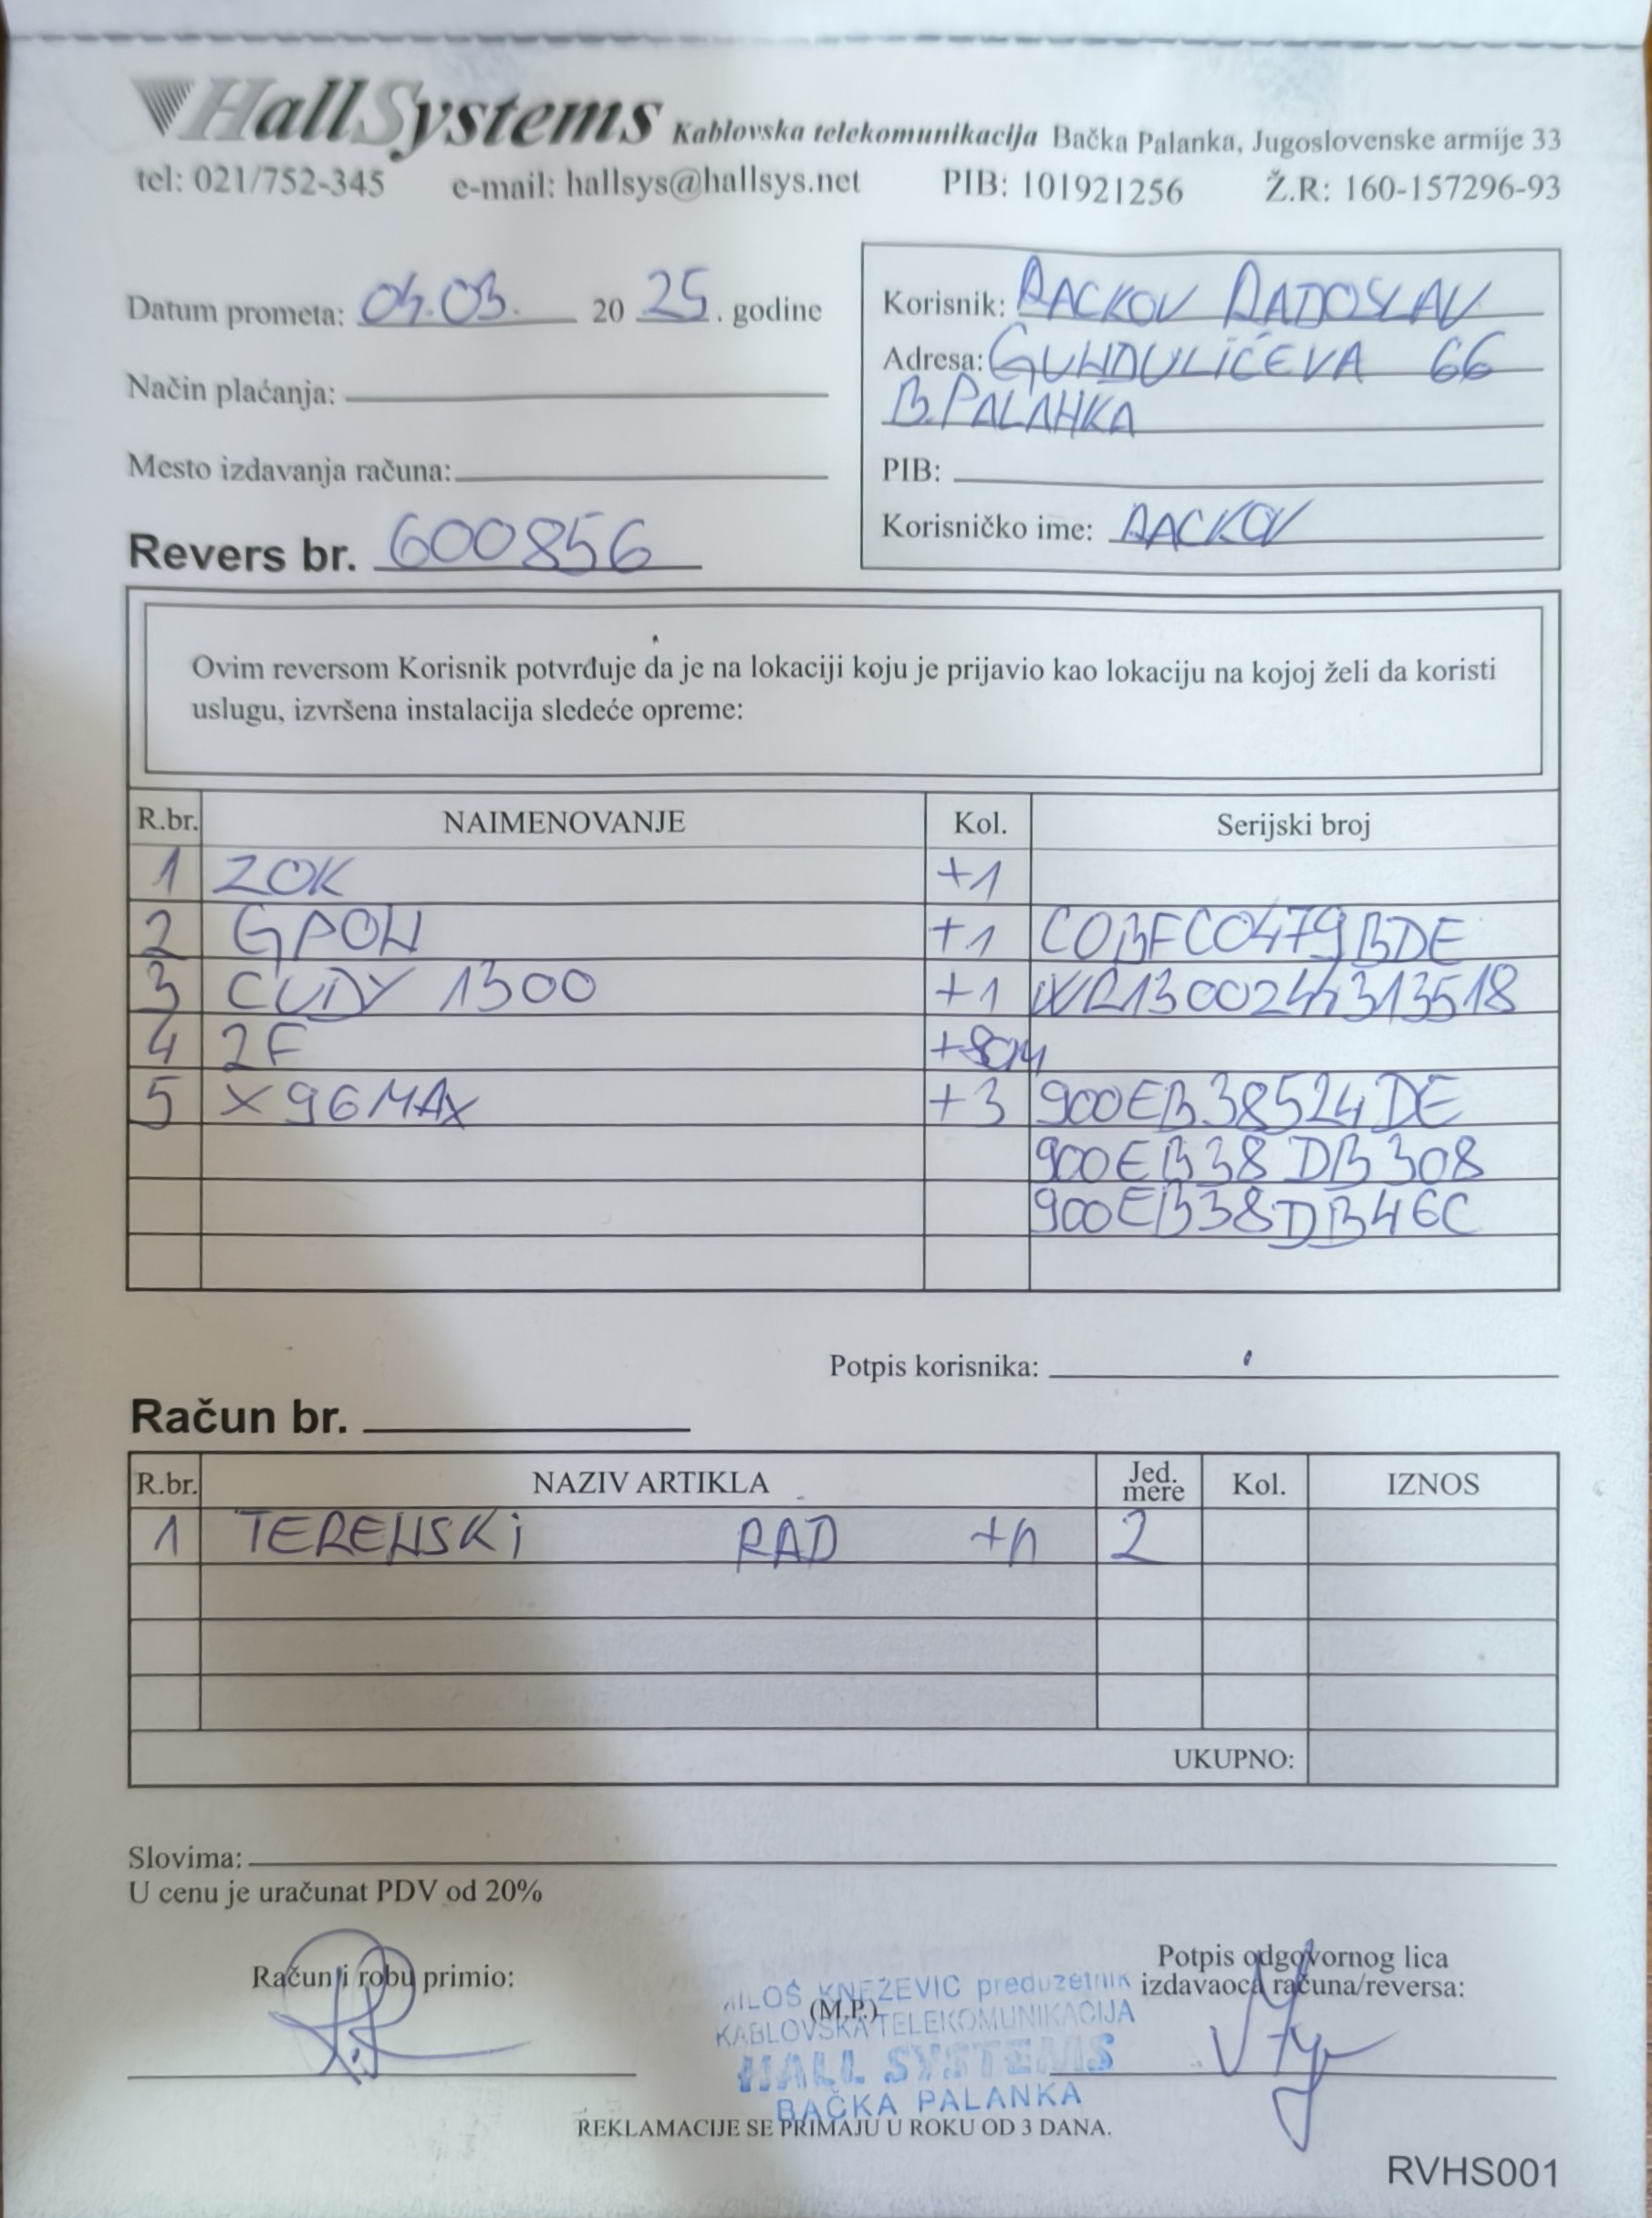 HallSystems Kablovska telekomunikacija Bačka Palanka, Jugoslovenske armije 33
tel: 021/752-345 e-mail: hallsys@hallsys.net PIB: 101921256 Ž.R: 160-157296-93
Datum prometa: 04.03. 20 25. godine
Način plaćanja:
Mesto izdavanja računa:
Revers br. 600856
Korisnik: RACKOV RADOSLAV
Adresa: GUNDULIĆEVA 66
B.PALANKA
PIB:
Korisničko ime: RACKOV
Ovim reversom Korisnik potvrđuje da je na lokaciji koju je prijavio kao lokaciju na kojoj želi da koristi
uslugu, izvršena instalacija sledeće opreme:
R.br. NAIMENOVANJE Kol. Serijski broj
1 ZOK +1
2 GPON +1 C0BFC0479BDE
3 CUDY 1300 +1 WR1300244313518
4 2F +80M
5 X96MAX +3 900EB38524DE
900EB38DB308
900EB38DB46C
Potpis korisnika:
Račun br.
R.br. NAZIV ARTIKLA Jed. mere Kol. IZNOS
1 TERENSKI RAD +h 2
UKUPNO:
Slovima:
U cenu je uračunat PDV od 20%
Račun i robu primio:
(M.P.)
Potpis odgovornog lica
izdavaoca računa/reversa:
MILOŠ KNEŽEVIĆ preduzetnik
KABLOVSKA TELEKOMUNIKACIJA
HALL SYSTEMS
BAČKA PALANKA
REKLAMACIJE SE PRIMAJU U ROKU OD 3 DANA.
RVHS001